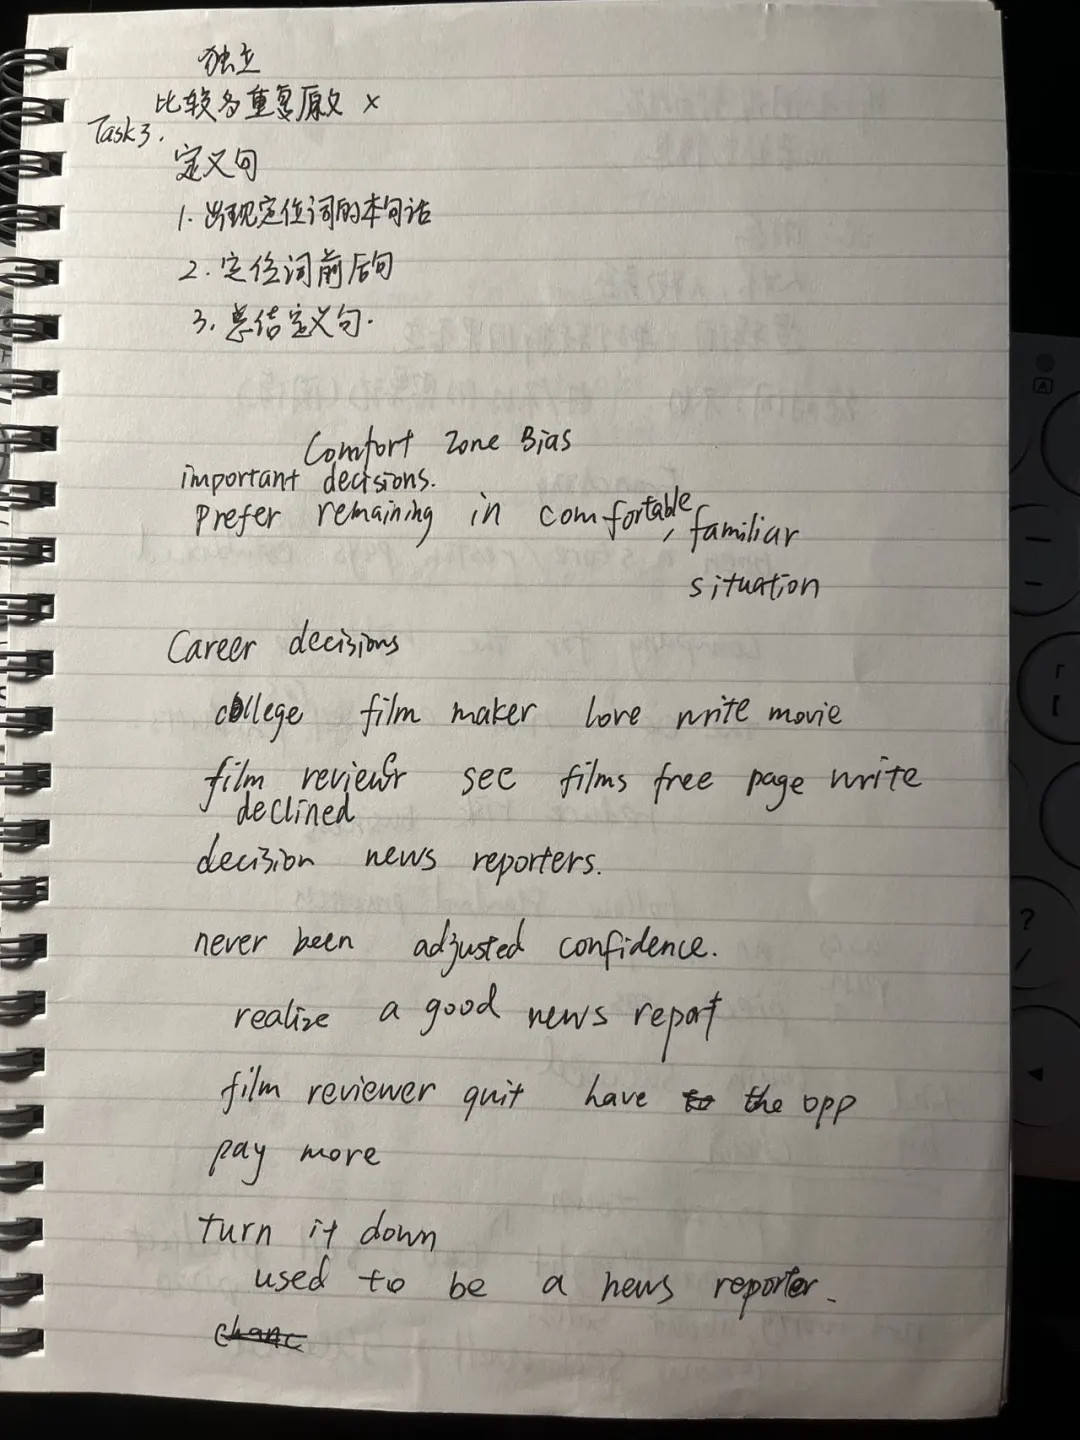 独立
比较各重复原文 ×
Task3.
定义句
1. 出现定位词的本句话
2. 定位词前后句
3. 总结定义句.
Comfort Zone Bias
important decisions.
Prefer remaining in comfortable, familiar
situation
Career decisions
college film maker love write movie
film reviewr see films free page write
declined
decision news reporters.
never been adjusted confidence.
realize a good news report
film reviewer quit have to the opp
pay more
turn it down
used to be a news reporter.
chanc